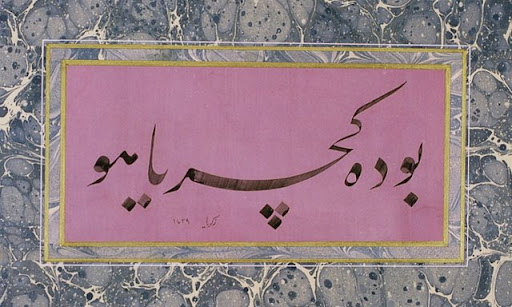 بو ده کچر یا هو
١٤٢٩